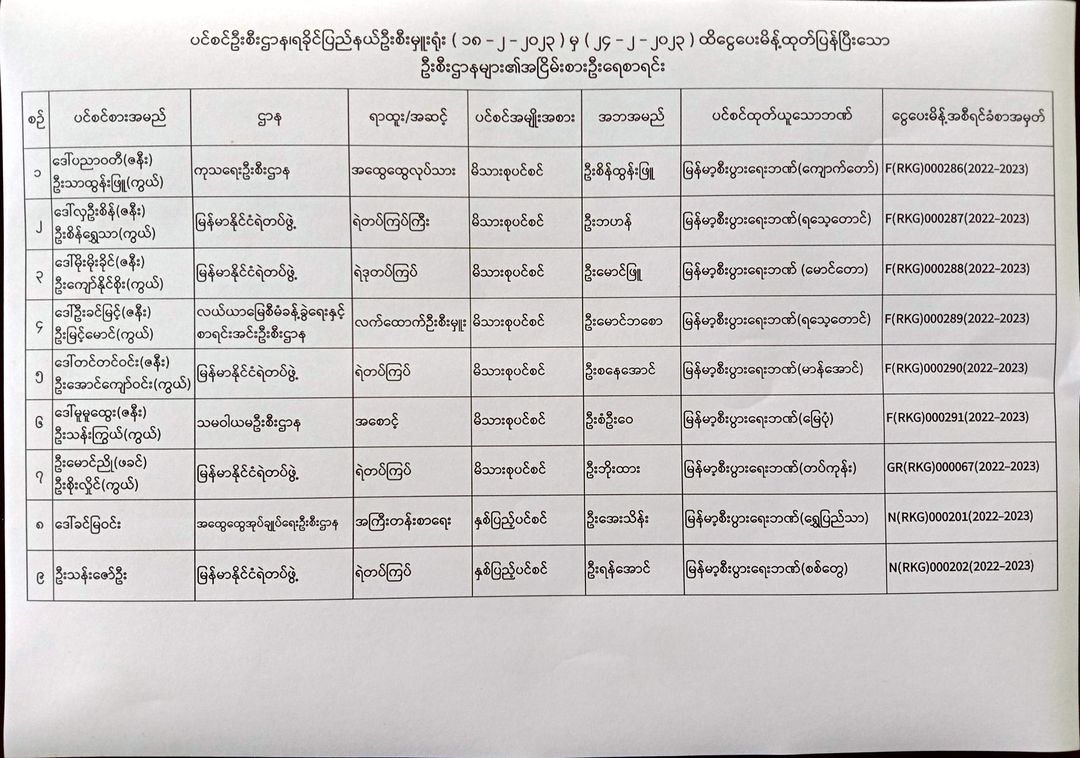 ပင်စင်ဦးစီးဌာန၊ရခိုင်ပြည်နယ်ဦးစီးမှူးရုံး ( ၁၈ – ၂ – ၂၀၂၃ ) မှ ( ၂၄ – ၂ – ၂၀၂၃ ) ထိငွေပေးမိန့်ထုတ်ပြန်ပြီးသော
ဦးစီးဌာနများ၏အငြိမ်းစားဦးရေစာရင်း
စဉ် ပင်စင်စားအမည် ဌာန ရာထူး/အဆင့် ပင်စင်အမျိုးအစား အဘအမည် ပင်စင်ထုတ်ယူသောဘဏ် ငွေပေးမိန့်အစီရင်ခံစာအမှတ်
၁ ဒေါ်ပညာဝတီ(ဇနီး) ကုသရေးဦးစီးဌာန အထွေထွေလုပ်သား မိသားစုပင်စင် ဦးစိန်ထွန်းဖြူ မြန်မာ့စီးပွားရေးဘဏ်(ကျောက်တော်) F(RKG)000286(2022–2023)
ဦးသာထွန်းဖြူ(ကွယ်)
၂ ဒေါ်လှဦးစိန်(ဇနီး) မြန်မာနိုင်ငံရဲတပ်ဖွဲ့ ရဲတပ်ကြပ်ကြီး မိသားစုပင်စင် ဦးဘဟန် မြန်မာ့စီးပွားရေးဘဏ်(ရသေ့တောင်) F(RKG)000287(2022–2023)
ဦးစိန်ရွှေသာ(ကွယ်)
၃ ဒေါ်မိုးမိုးခိုင်(ဇနီး) မြန်မာနိုင်ငံရဲတပ်ဖွဲ့ ရဲဒုတပ်ကြပ် မိသားစုပင်စင် ဦးမောင်ဖြူ မြန်မာ့စီးပွားရေးဘဏ် (မောင်တော) F(RKG)000288(2022–2023)
ဦးကျော်နိုင်စိုး(ကွယ်)
၄ ဒေါ်ဦးခင်မြင့်(ဇနီး) လယ်ယာမြေစီမံခန့်ခွဲရေးနှင့် လက်ထောက်ဦးစီးမှူး မိသားစုပင်စင် ဦးမောင်ဘစော မြန်မာ့စီးပွားရေးဘဏ်(ရသေ့တောင်) F(RKG)000289(2022–2023)
ဦးမြင့်မောင်(ကွယ်) စာရင်းအင်းဦးစီးဌာန
၅ ဒေါ်တင်တင်ဝင်း(ဇနီး) မြန်မာနိုင်ငံရဲတပ်ဖွဲ့ ရဲတပ်ကြပ် မိသားစုပင်စင် ဦးစနေအောင် မြန်မာ့စီးပွားရေးဘဏ်(မာန်အောင်) F(RKG)000290(2022–2023)
ဦးအောင်ကျော်ဝင်း(ကွယ်)
၆ ဒေါ်မူမူထွေး(ဇနီး) သမဝါယမဦးစီးဌာန အစောင့် မိသားစုပင်စင် ဦးစံဦးဝေ မြန်မာ့စီးပွားရေးဘဏ်(မြေပုံ) F(RKG)000291(2022–2023)
ဦးသန်းကြွယ်(ကွယ်)
၇ ဦးမောင်ညို(ဖခင်) မြန်မာနိုင်ငံရဲတပ်ဖွဲ့ ရဲတပ်ကြပ် မိသားစုပင်စင် ဦးဘိုးထား မြန်မာ့စီးပွားရေးဘဏ်(တပ်ကုန်း) GR(RKG)000067(2022–2023)
ဦးစိုးလှိုင်(ကွယ်)
၈ ဒေါ်ခင်မြဝင်း အထွေထွေအုပ်ချုပ်ရေးဦးစီးဌာန အကြီးတန်းစာရေး နှစ်ပြည့်ပင်စင် ဦးအေးသိန်း မြန်မာ့စီးပွားရေးဘဏ်(ရွှေပြည်သာ) N(RKG)000201(2022–2023)
၉ ဦးသန်းဇော်ဦး မြန်မာနိုင်ငံရဲတပ်ဖွဲ့ ရဲတပ်ကြပ် နှစ်ပြည့်ပင်စင် ဦးရန်အောင် မြန်မာ့စီးပွားရေးဘဏ်(စစ်တွေ) N(RKG)000202(2022–2023)